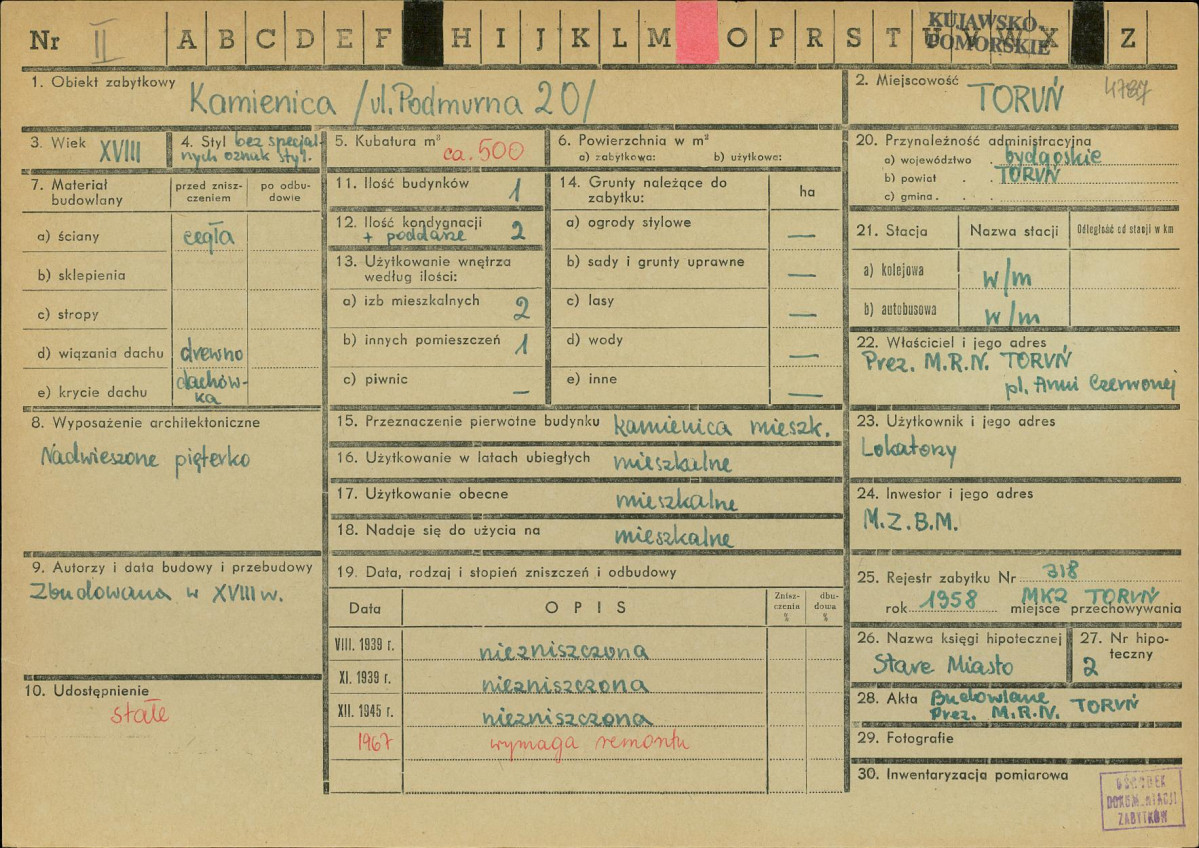 Nr II A B C D E F H I J K L M O P R S T U V W X Z
KUJAWSKO-
POMORSKIE
1. Obiekt zabytkowy
Kamienica /ul. Podmurna 20/
2. Miejscowość
TORUŃ
4787
3. Wiek XVIII
4. Styl bez specjal-
nych oznak styl.
5. Kubatura m³
ca. 500
6. Powierzchnia w m²
a) zabytkowa: b) użytkowa:
20. Przynależność administracyjna
a) województwo . bydgoskie
b) powiat . . TORUŃ
c) gmina . . .
7. Materiał
budowlany
przed znisz-
czeniem
po odbu-
dowie
a) ściany cegła
b) sklepienia
c) stropy
d) wiązania dachu drewno
e) krycie dachu dachów-
ka
11. Ilość budynków 1
12. Ilość kondygnacji
+ poddasze 2
13. Użytkowanie wnętrza
według ilości:
a) izb mieszkalnych 2
b) innych pomieszczeń 1
c) piwnic —
14. Grunty należące do
zabytku:
ha
a) ogrody stylowe —
b) sady i grunty uprawne —
c) lasy —
d) wody —
e) inne —
21. Stacja Nazwa stacji Odległość od stacji w km
a) kolejowa w/m
b) autobusowa w/m
22. Właściciel i jego adres
Prez. M.R.N. TORUŃ
pl. Armi Czerwonej
8. Wyposażenie architektoniczne
Nadwieszone pięterko
15. Przeznaczenie pierwotne budynku kamienica mieszk.
16. Użytkowanie w latach ubiegłych mieszkalne
17. Użytkowanie obecne mieszkalne
18. Nadaje się do użycia na mieszkalne
23. Użytkownik i jego adres
Lokatorzy
24. Inwestor i jego adres
M.Z.B.M.
9. Autorzy i data budowy i przebudowy
Zbudowana w XVIII w.
19. Data, rodzaj i stopień zniszczeń i odbudowy
Data OPIS
Znisz-
czenia
%
dbu-
dowa
%
VIII. 1939 r. niezniszczona
XI. 1939 r. niezniszczona
XII. 1945 r. niezniszczona
1967 wymaga remontu
25. Rejestr zabytku Nr 318
rok 1958 MKZ TORUŃ
miejsce przechowywania
26. Nazwa księgi hipotecznej
Stare Miasto
27. Nr hipo-
teczny
2
10. Udostępnienie
stałe
28. Akta Budowlane
Prez. M.R.N. TORUŃ
29. Fotografie
30. Inwentaryzacja pomiarowa
OŚRODEK
DOKUMENTACJI
ZABYTKÓW